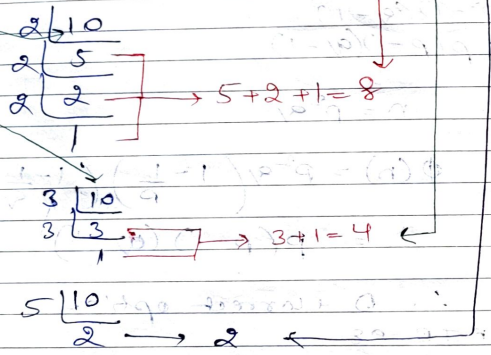 2 | 10
2 | 5
2 | 2 → 5+2+1=8
1
3 | 10
3 | 3 → 3+1=4
1
5 | 10
2 → 2